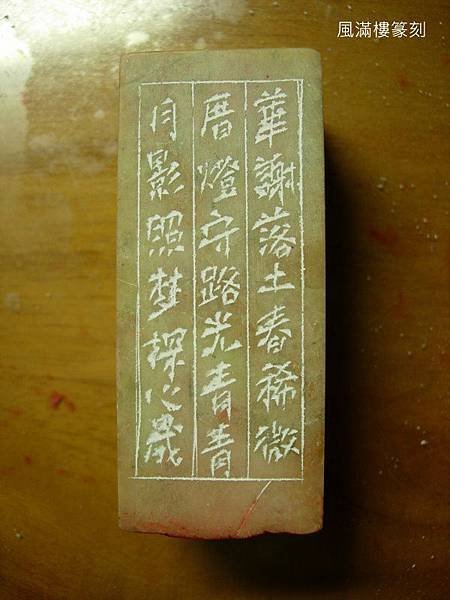 風滿樓篆刻
華謝落土春稀微
厝燈守路光青青
月影照梦探心晟